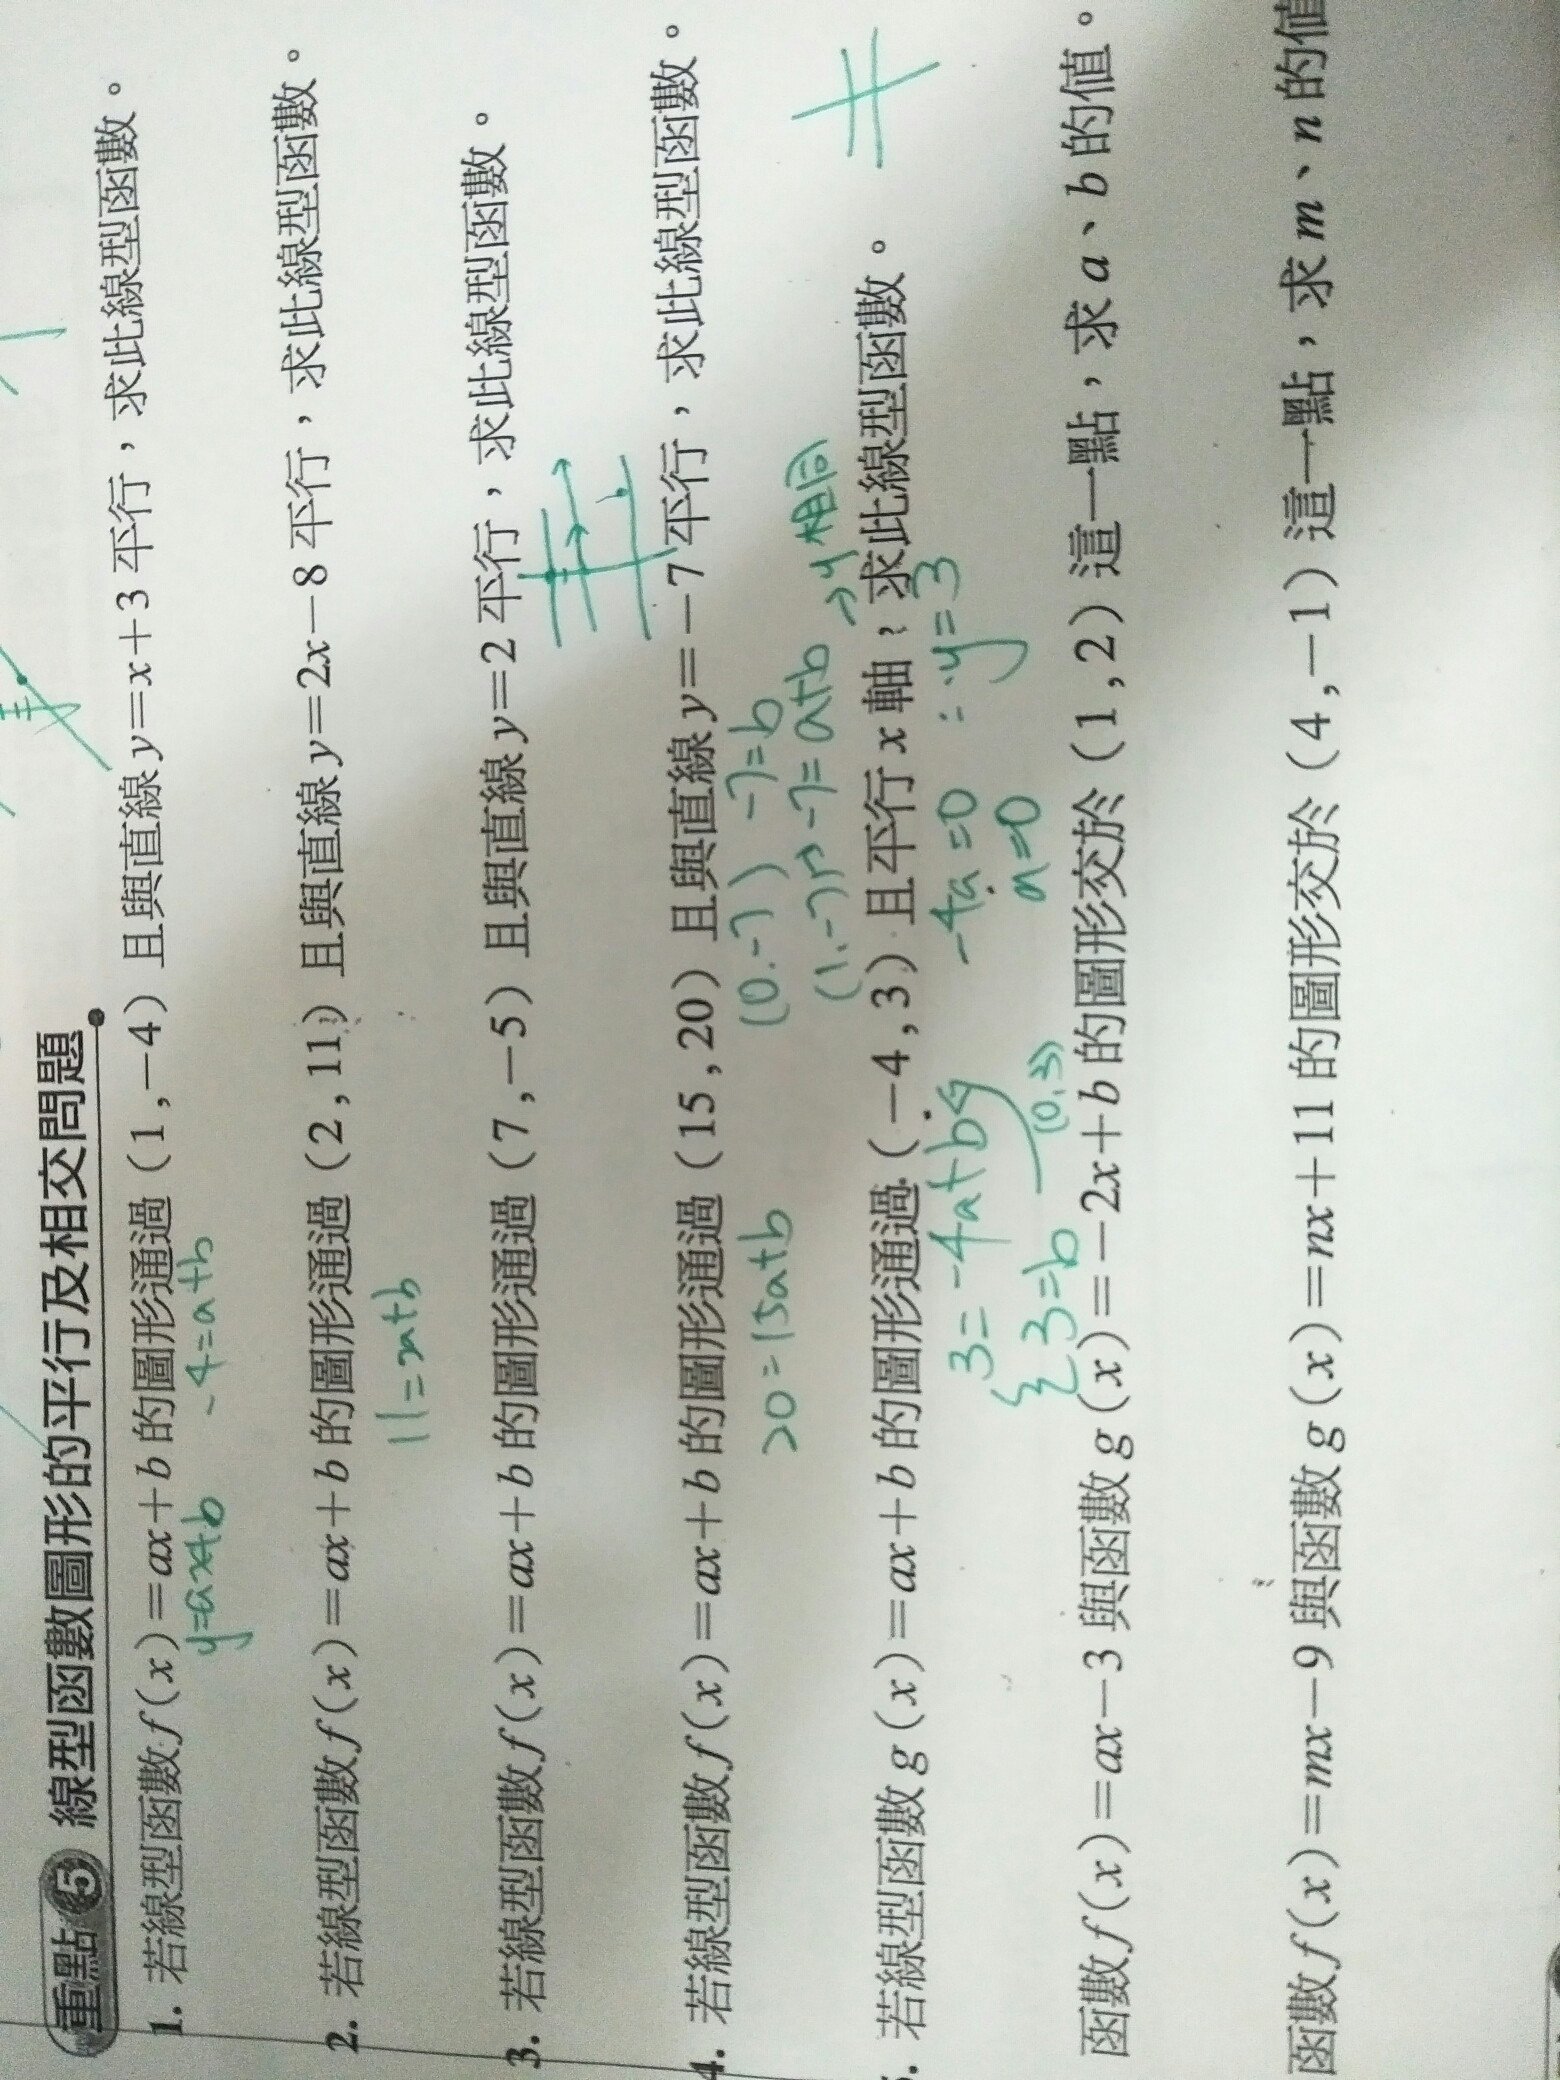 重點 5 線型函數圖形的平行及相交問題
1. 若線型函數 f(x)=ax+b 的圖形通過(1,-4)且與直線 y=x+3 平行，求此線型函數。
y=ax+b -4=a+b
2. 若線型函數 f(x)=ax+b 的圖形通過(2,11)且與直線 y=2x-8 平行，求此線型函數。
11=2a+b
3. 若線型函數 f(x)=ax+b 的圖形通過(7,-5)且與直線 y=2 平行，求此線型函數。
4. 若線型函數 f(x)=ax+b 的圖形通過(15,20)且與直線 y=-7 平行，求此線型函數。
20=15a+b (0.-7) -7=b
(1.-7) -7=a+b →y相同
. 若線型函數 g(x)=ax+b 的圖形通過(-4,3)且平行 x 軸，求此線型函數。
3=-4a+b -4a=0 ∴y=3
3=b (0,3) a=0
函數 f(x)=ax-3 與函數 g(x)=-2x+b 的圖形交於(1,2)這一點，求 a、b 的值。
函數 f(x)=mx-9 與函數 g(x)=nx+11 的圖形交於(4,-1)這一點，求 m、n 的值